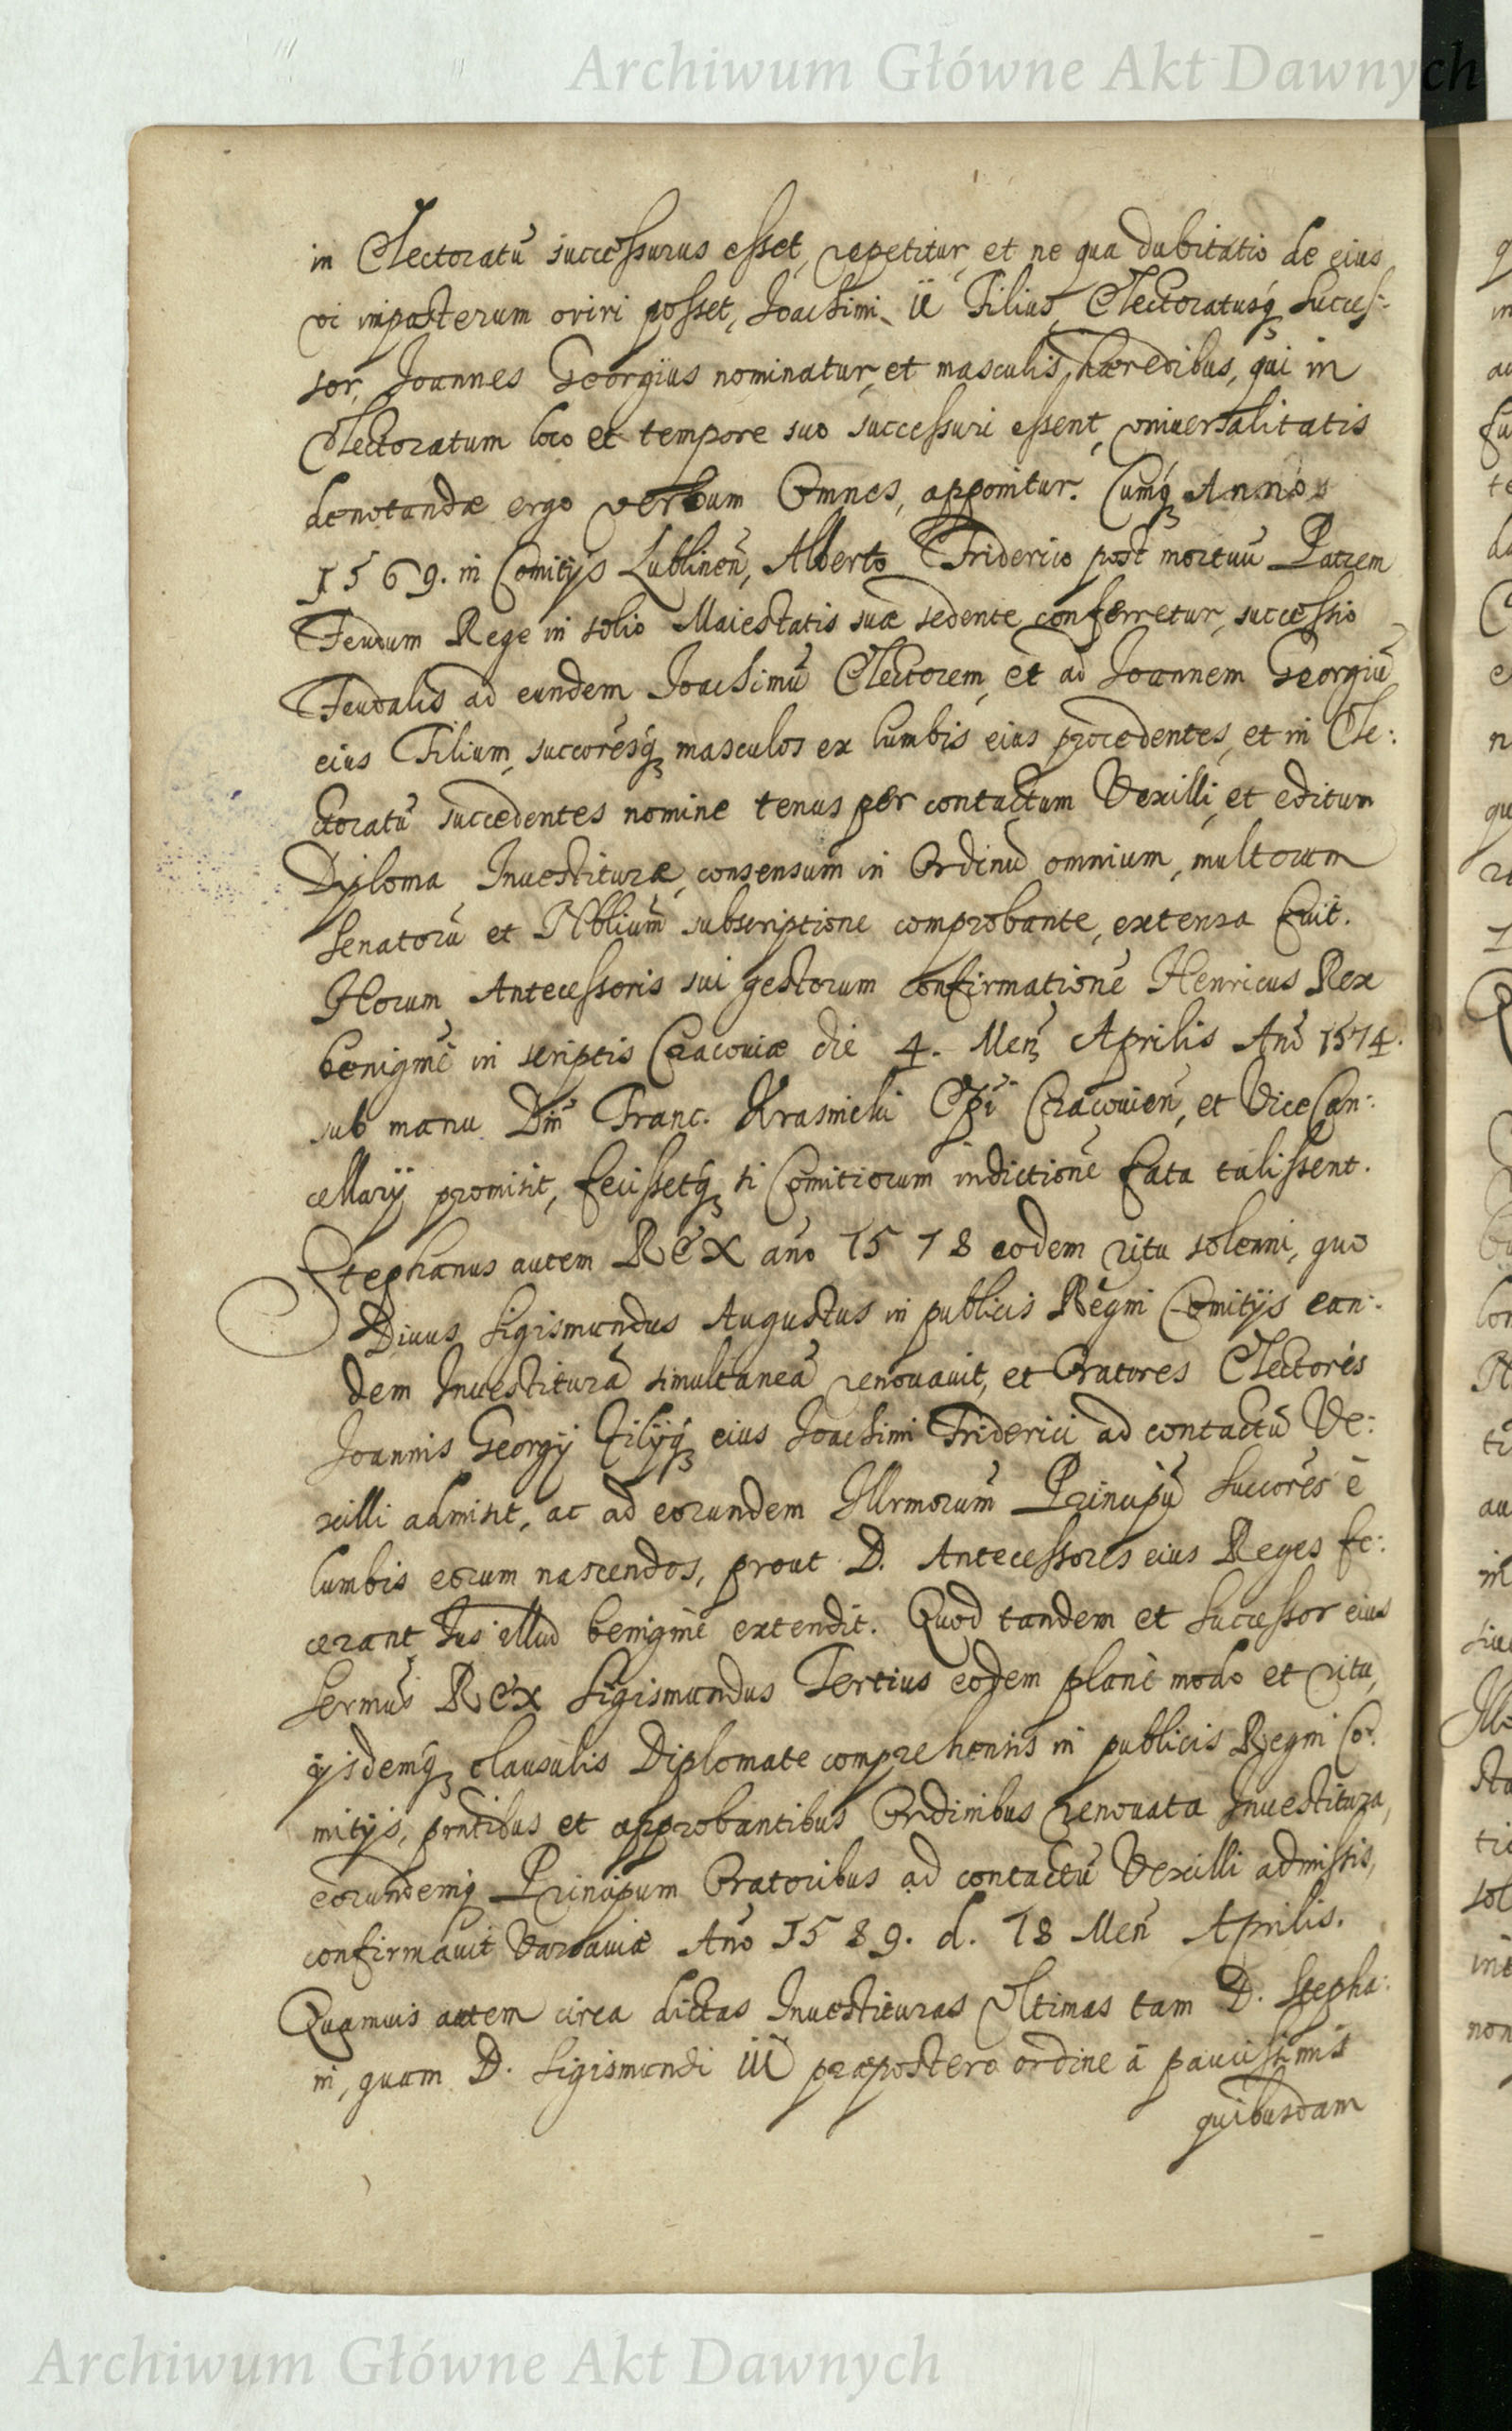 Archiwum Główne Akt Dawnych
in Electoratū successurus esset, repetitur, et ne qua dubitatio de eius
vi imposterum oriri posset, Joachimi II Filius, Electoratusq́ʒ Succes-:
sor, Joannes Georgius nominatur, et masculis hæredibus, qui in
Electoratum loco et tempore suo successuri essent, vniuersalitatis
denotandæ ergo verbum Omnes, apponitur. Cumq́ʒ Anno
1569. in Comitijs Lublinen̄, Alberto Friderico post mortuū Patrem
Feudum Rege in solio Maiestatis suæ sedente conferretur, successio
Feudalis ad eundem Joachimū Electorem, et ad Joannem Georgiū
eius Filium, succōresq́ʒ masculos ex lumbis eius procedentes, et in Ele-:
ctoratū succedentes nomine tenus per contactum Vexilli, et editum
Dyloma Inuestituræ, consensum in Ordinū omnium, multorum
Senatorū et Nōblium subscriptione comprobante, extensa fuit.
Horum Antecessoris sui gestorum confirmationē Henricus Rex
benignè in scriptis Cracouiæ die 4. Men̄ Aprilis An̄o 1574.
sub manu Dn̄i Franc. Krasinski Ep̄i Cracouien̄, et Vice Can-:
cellarij promisit, fecissetq́ʒ si Comitiorum indictionē fata tulissent.
Stephanus autem REX an̄o 1578 eodem ritu solenni, quo
Diuus Sigismundus Augustus in publicis Regni Comitijs ean-:
dem Inuestiturā simultaneā renouauit, et Oratores Electorès
Joannis Georgij Filijq́ʒ eius Joachimi Friderici ad contactū Ve-:
xilli admisit, ac ad eorundem Illr̄morum Principū Succōres è
lumbis eorum nascendos, prout D. Antecessores eius Reges fe-:
cerant, Jus illud benignè extendit. Quod tandem et Successor eius
Serm̄us REX Sigismundus Tertius eodem planè modo et ritu,
ijsdemq́ʒ clausulis Diplomate comprehensis in publicis Regni Co-:
mitijs, pn̄tibus et approbantibus Ordinibus renouata Inuestitura,
eorundemq́ʒ Principum Oratoribus ad contactū Vexilli admissis,
confirmauit Varsauiæ An̄o 1589. d. 18 Men̄ Aprilis.
Quamuis autem circa dictas Inuestituras Vltimas tam D. Stepha-:
ni, quam D. Sigismundi III præpostero ordine à paucissimis
quibusdam
Archiwum Główne Akt Dawnych